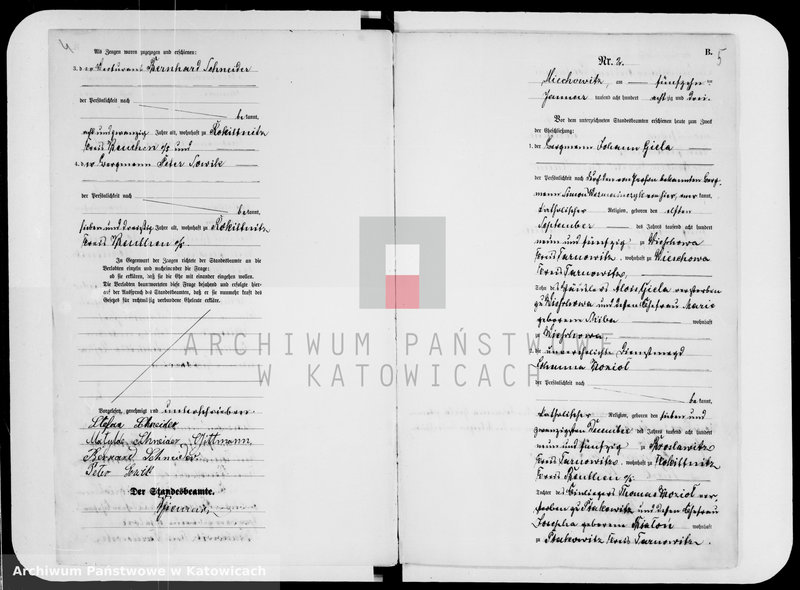 4
Als Zeugen waren zugezogen und erschienen:
3. der Bernhard Schneider
der Persönlichkeit nach
bekannt,
acht und zwanzig Jahre alt, wohnhaft zu Rokittnitz
Kreis Beuthen o/s und
4. der Bergmann Peter Sowik
der Persönlichkeit nach
bekannt,
sieben und dreißig Jahre alt, wohnhaft zu Rokittnitz
Kreis Beuthen o/s.
In Gegenwart der Zeugen richtete der Standesbeamte an die
Verlobten einzeln und nacheinander die Frage:
ob sie erklären, daß sie die Ehe mit einander eingehen wollen.
Die Verlobten beantworteten diese Frage bejahend und erfolgte hier-
auf der Ausspruch des Standesbeamten, daß er sie nunmehr kraft des
Gesetzes für rechtmäßig verbundene Eheleute erkläre.
Vorgelesen, genehmigt und unterschrieben
Stefan Schneider
Matylda Schneider Gittmann,
Bernard Schneider
Peter Sowik
Der Standesbeamte.
B.
5
Nr. 2.
Miechowitz, am fünfzehn ten
Januar tausend acht hundert achtzig und drei.
Vor dem unterzeichneten Standesbeamten erschienen heute zum Zweck
der Eheschließung:
1. der Bergmann Johann Giela
der Persönlichkeit nach durch den von Person bekannten Berg-
mann Simon von hier, aner kannt,
katholischer Religion, geboren den elften
September des Jahres tausend acht hundert
neun und fünfzig zu Wieschowa
Kreis Tarnowitz, wohnhaft zu Wieschowa
Kreis Tarnowitz,
Sohn des Häuslers Alois Giela verstorben
zu Wieschowa und dessen Ehefrau Marie
geborenen wohnhaft
zu Wieschowa
2. die unverehelichte Dienstmagd
Johanna Koziol
der Persönlichkeit nach
bekannt,
katholischer Religion, geboren den sieben und
zwanzigsten Dezember des Jahres tausend acht hundert
neun und fünfzig zu Broslawitz
Kreis Tarnowitz, wohnhaft zu Rokittnitz
Kreis Beuthen o/s.
Tochter des Einliegers Thomas Koziol ver-
storben zu Ptakowitz und dessen Ehefrau
Josepha geborenen wohnhaft
zu Ptakowitz Kreis Tarnowitz.
ARCHIWUM PAŃSTWOWE
W KATOWICACH
Archiwum Państwowe w Katowicach